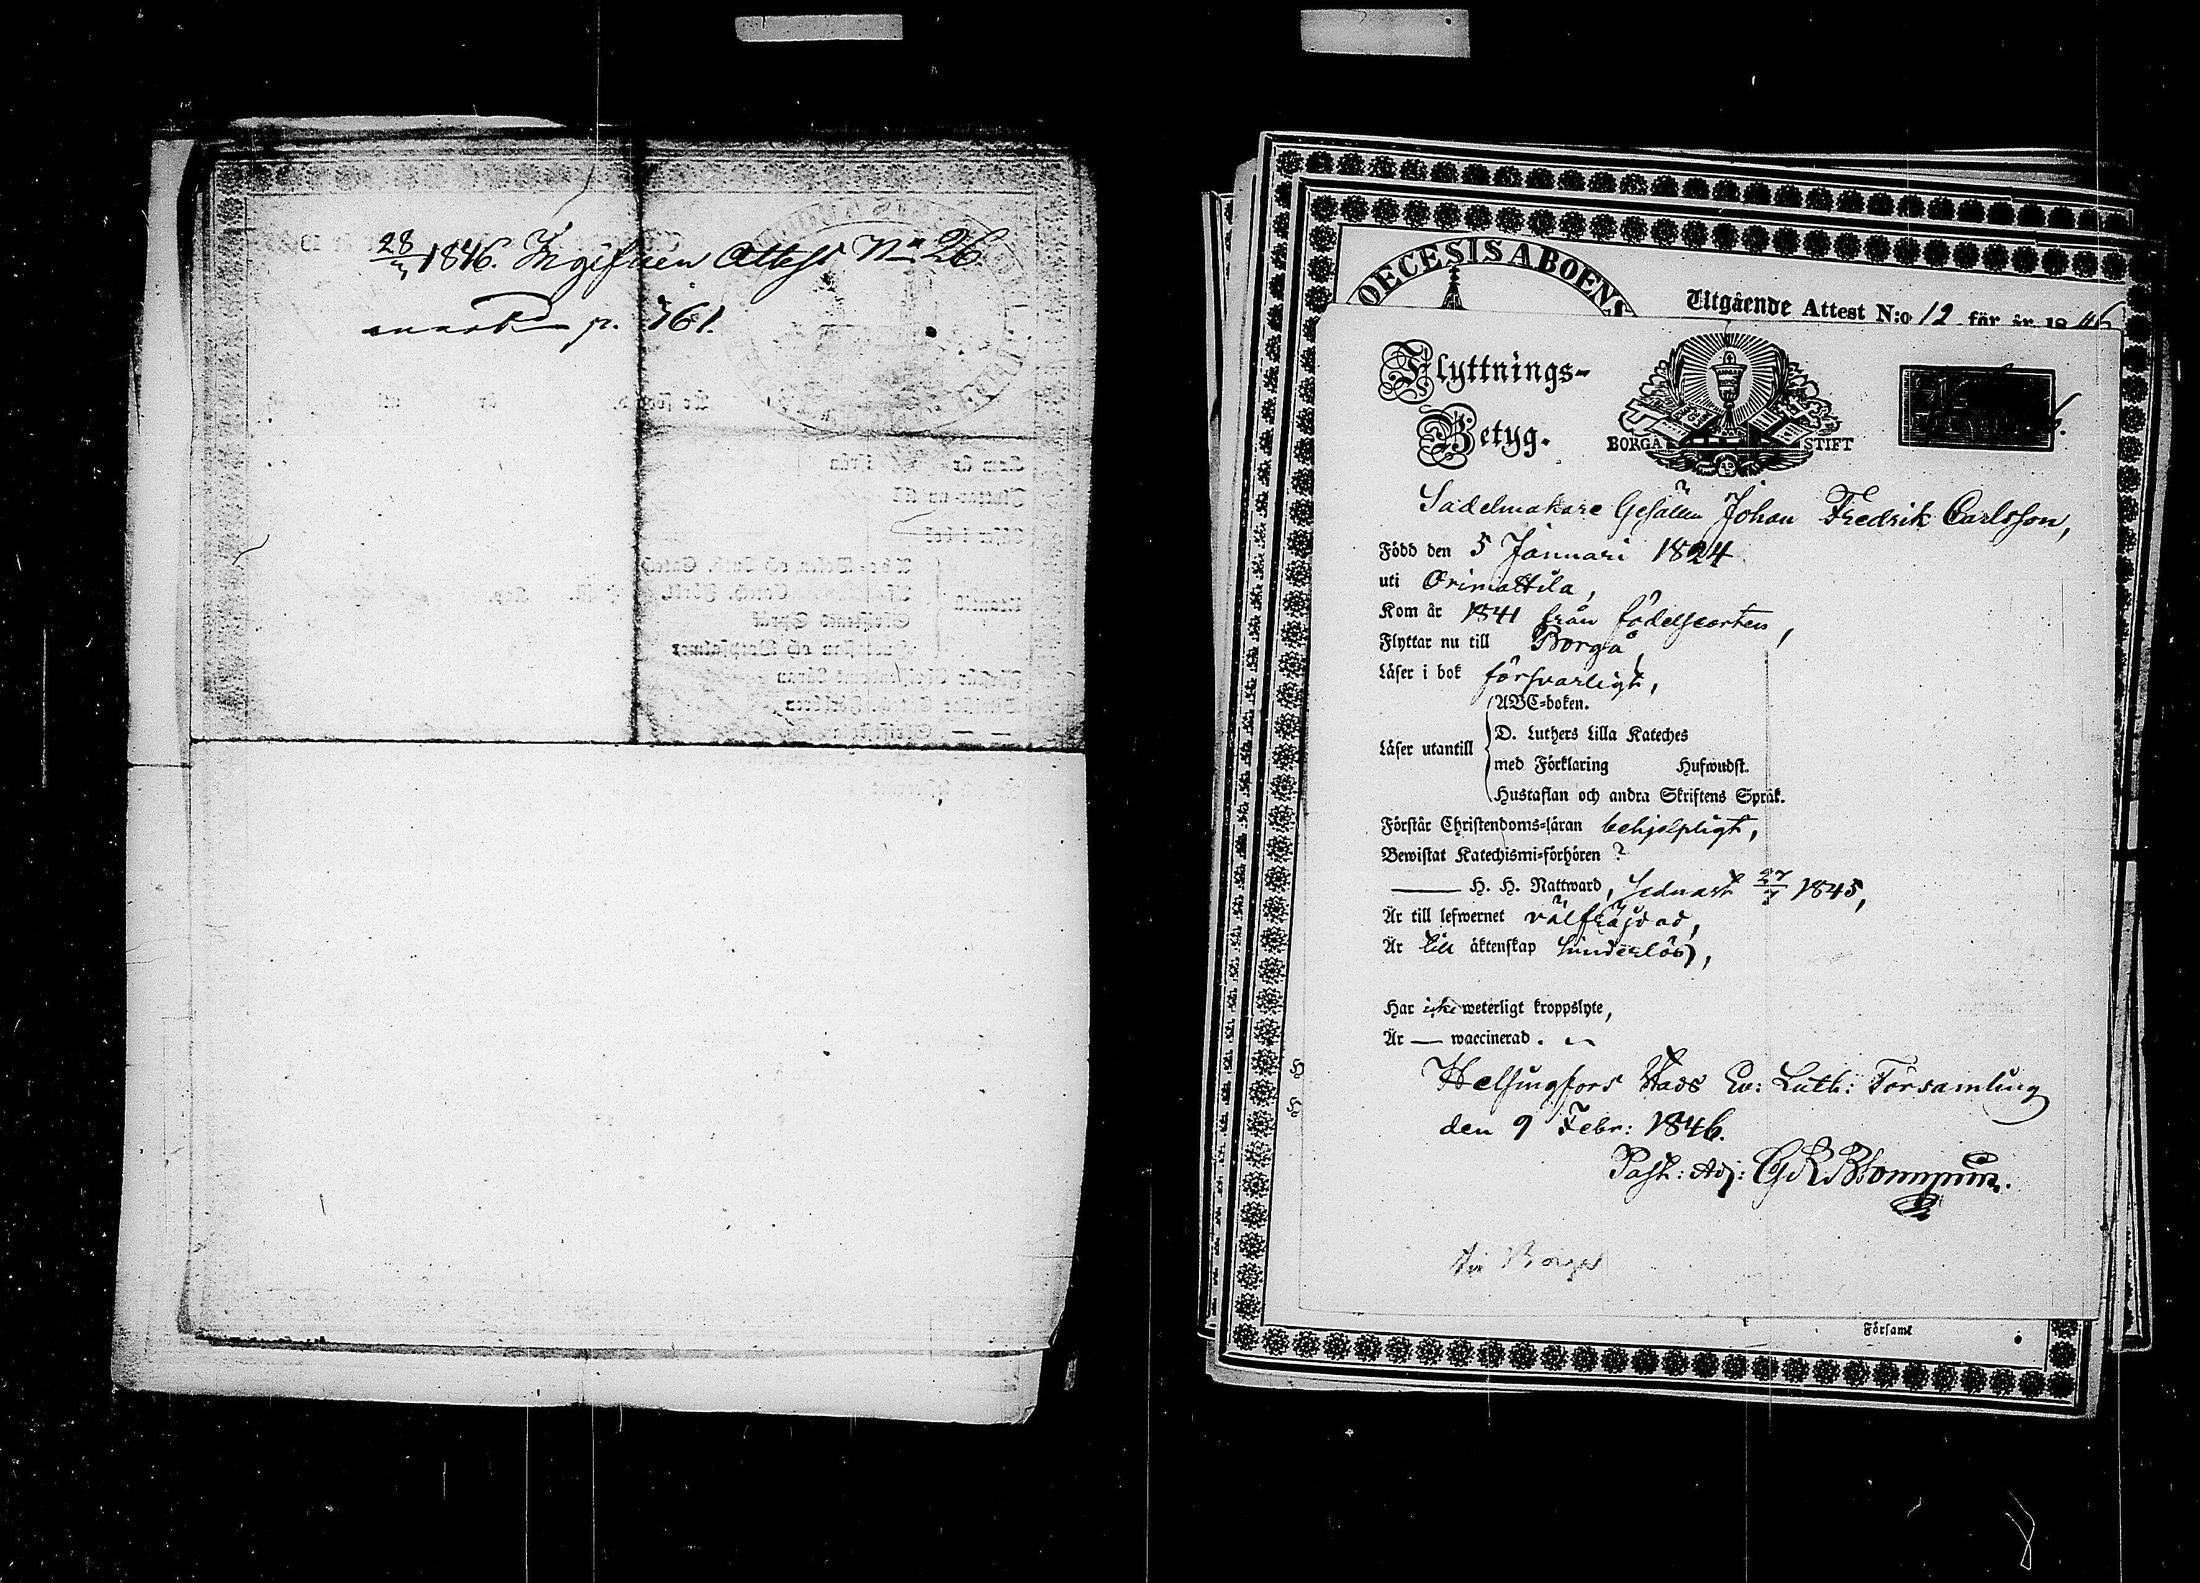 28/3 1846. Ingifven Attest No 26.
p. 761.
DIOECESIS ABOENS
Utgående Attest N:o 12 för år 1846
Flyttnings-
Betyg.
BORGÅ STIFT
Sadelmakare Gesällen Johan Fredrik Carlsson,
Född den 5 Januari 1824
uti Orimattila,
Kom år 1841 från födelseorten,
Flyttar nu till Borgå,
Läser i bok försvarligt,
ABC-boken.
Läser utantill D. Luthers Lilla Kateches
med Förklaring Hufwudst.
Hustaflan och andra Skriftens Språk.
Förstår Christendoms-läran behjelpligt,
Bewistat Katechismi-förhören ?
H. H. Nattward, sednast 27/7 1845,
Är till lefwernet välfräjdad,
Är till äktenskap hinderlös,
Har icke weterligt kroppslyte,
Är — waccinerad.
Helsingfors Stads Ev: Luth: Församling
den 9 Febr: 1846.
Past: Adj:
Borgå
Församl